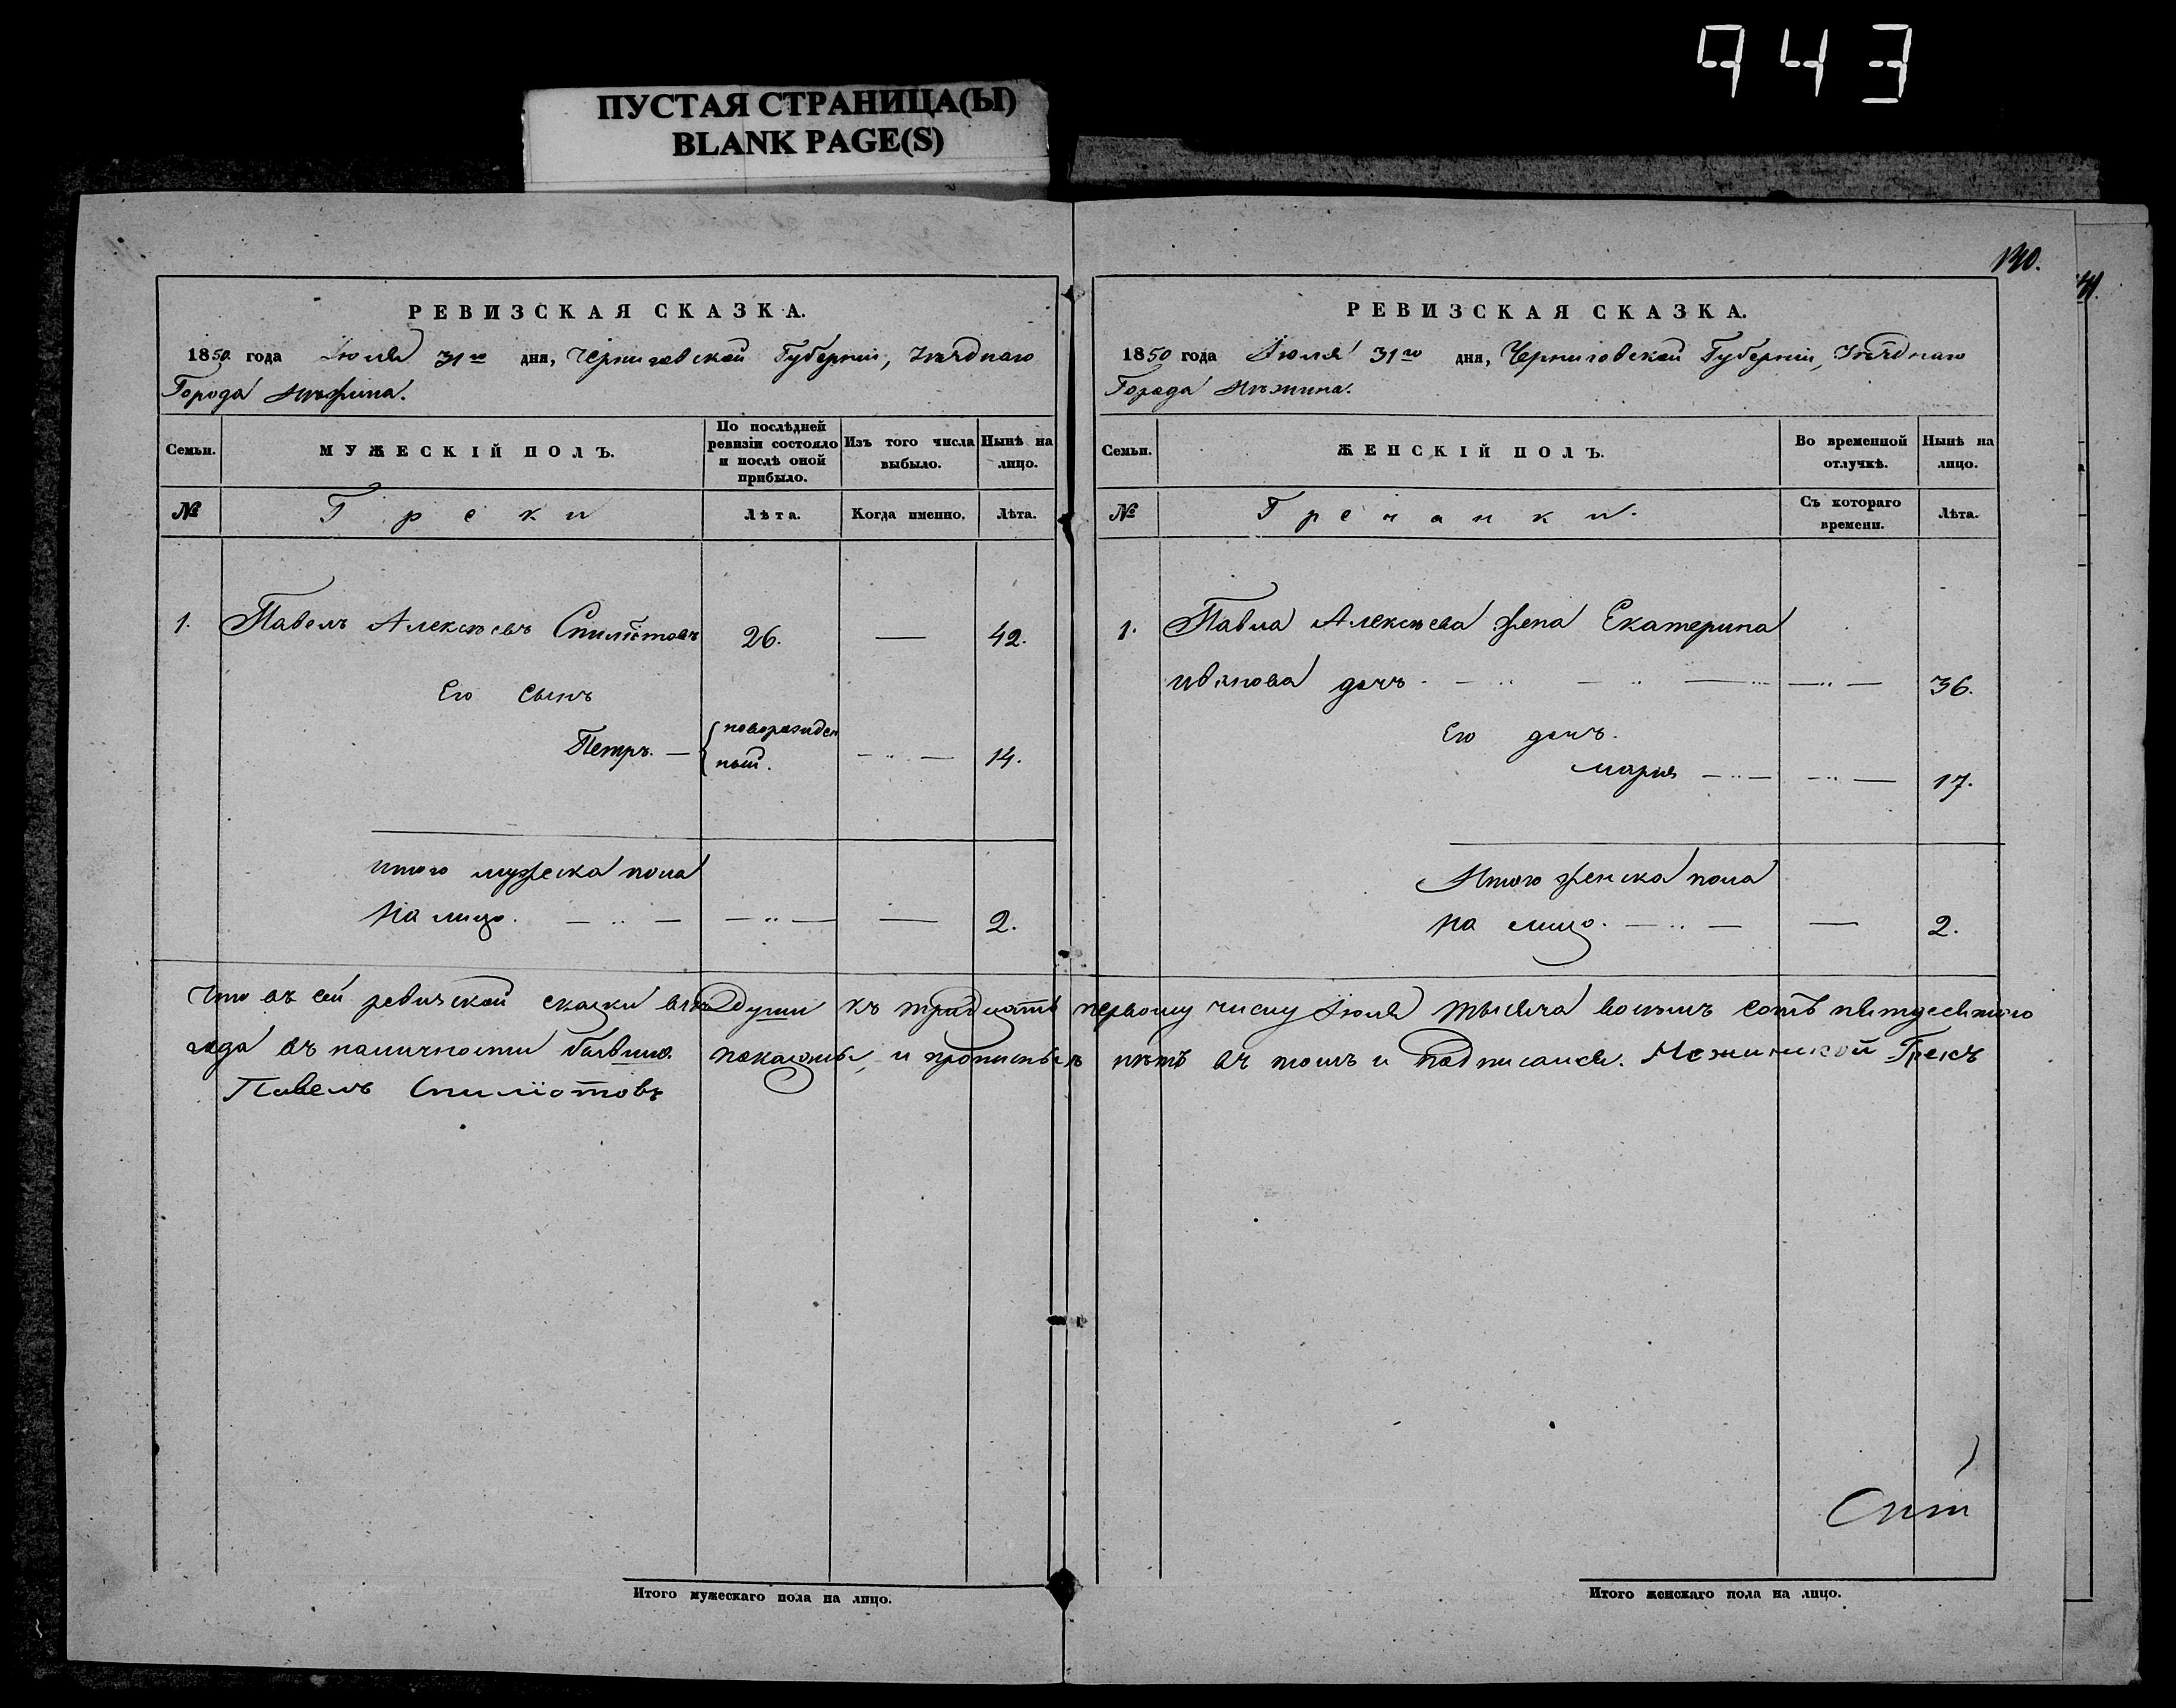 943
ПУСТАЯ СТРАНИЦА(Ы)
BLANK PAGE(S)
РЕВИЗСКАЯ СКАЗКА.
1850 года Іюля 31го дня, Черниговской Губерніи, Уѣзднаго
Города Нѣжина.
Семьи. МУЖЕСКІЙ ПОЛЪ. По послѣдней ревизіи состояло и послѣ оной прибыло. Изъ того числа выбыло. Нынѣ на лицо.
№ Греки Лѣта. Когда именно. Лѣта.
1. Павелъ Алексѣевъ Спиліотовъ 26. — 42.
Его сынъ
Петръ. — новорожден
ный. — 14.
Итого мужеска пола
на лицо. — — — 2.
130.
РЕВИЗСКАЯ СКАЗКА.
1850 года Іюля 31го дня, Черниговской Губерніи, Уѣзднаго
Города Нѣжина.
Семьи. ЖЕНСКІЙ ПОЛЪ. Во временной отлучкѣ. Нынѣ на лицо.
№ Гречанки. Съ котораго времени. Лѣта.
1. Павла Алексѣева жена Екатерина
Иванова дочь — — 36.
Его дочь.
Марія — — 17.
Итого женска пола
на лицо. — — 2.
Что въ сей ревизской сказки всѣ души къ тридцать первому числу Іюля тысяча восемъ сотъ пятидесятого
года въ наличности бывшіе показаны, и прописныхъ нѣтъ въ томъ и подписался. Нежинской Грекъ
Павелъ Спиліотовъ
Итого мужескаго пола на лицо.
Итого женскаго пола на лицо.